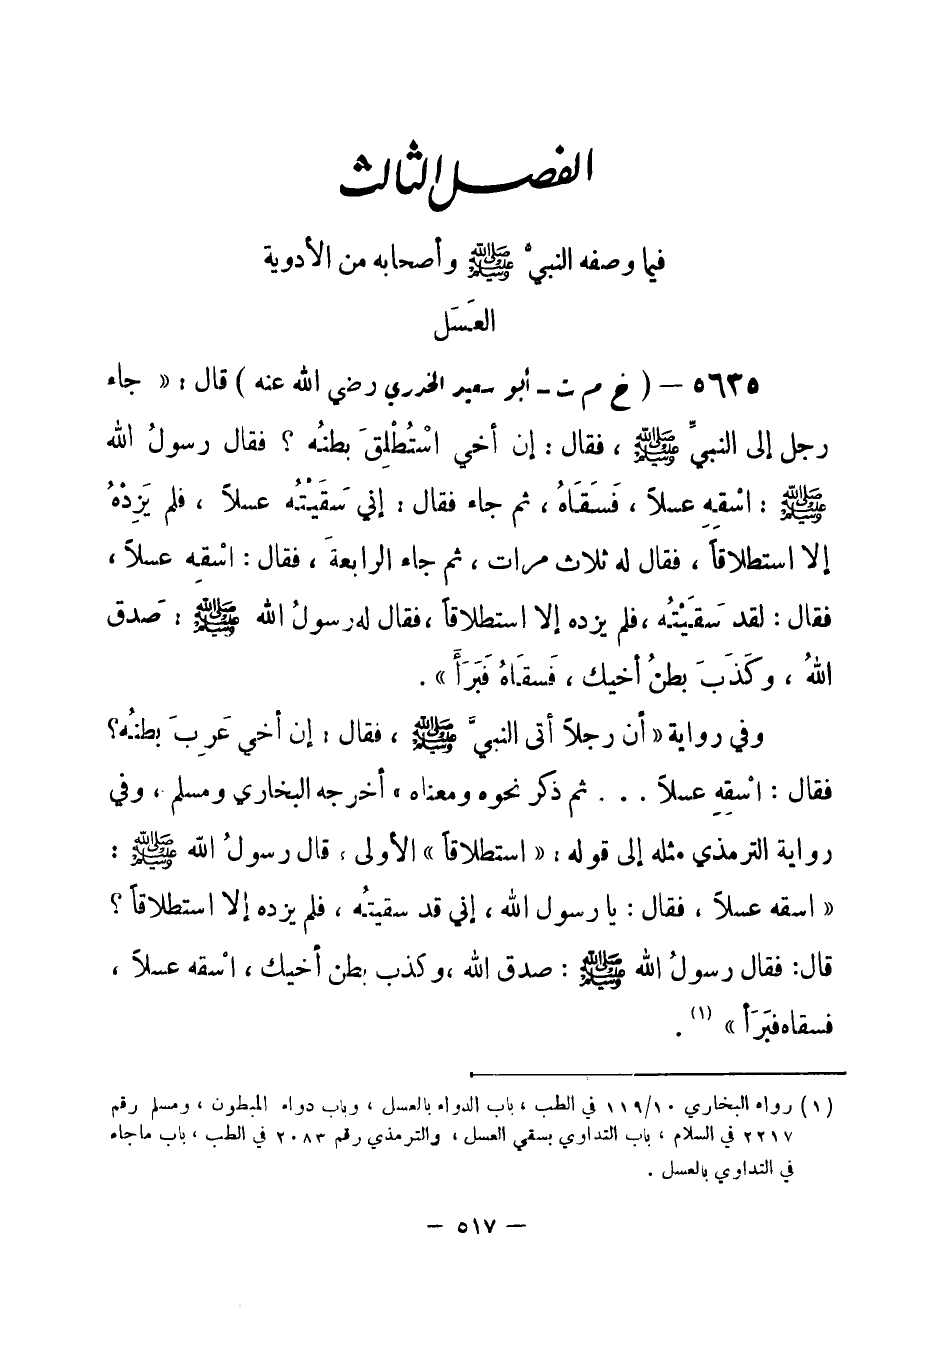 الفصل الثالث
فيما وصفه النبيُّ ﷺ وأصحابه من الأدوية
العَسَل
٥٦٣٥ – ( خ م ت – أبو سعيد الخدري رضي الله عنه ) قال : « جاء
رجل إلى النبيِّ ﷺ ، فقال : إن أخي اسْتُطْلِقَ بطنُه ؟ فقال رسولُ الله
ﷺ : اسْقِهِ عسلاً ، فَسَقَاهُ ، ثم جاء فقال : إني سَقَيْتُه عسلاً ، فلم يَزِدْهُ
إلا استطلاقاً ، فقال له ثلاث مرات ، ثم جاء الرابعةَ ، فقال : اسْقِهِ عسلاً ،
فقال : لقد سَقَيْتُه ، فلم يزده إلا استطلاقاً ، فقال له رسولُ الله ﷺ : صَدق
اللهُ ، وكَذَبَ بطنُ أخيك ، فَسقَاهُ فَبَرَأَ » .
وفي رواية « أن رجلاً أتى النبيَّ ﷺ ، فقال : إن أخي عَرِبَ بطنُه ؟
فقال : اسْقِهِ عسلاً . . . ثم ذكر نحوه ومعناه » أخرجه البخاري ومسلم ، وفي
رواية الترمذي مثله إلى قوله : « استطلاقاً » الأولى ، قال رسولُ الله ﷺ :
« اسقه عسلاً ، فقال : يا رسول الله ، إني قد سقيتُه ، فلم يزده إلا استطلاقاً ؟
قال : فقال رسولُ الله ﷺ : صدق الله ، وكذب بطن أخيك ، اسْقه عسلاً ،
فسقاه فبَرَأ » (١) .
(١) رواه البخاري ١١٩/١٠ في الطب ، باب الدواء بالعسل ، وباب دواء المبطون ، ومسلم رقم
٢٢١٧ في السلام ، باب التداوي بسقي العسل ، والترمذي رقم ٢٠٨٣ في الطب ، باب ماجاء
في التداوي بالعسل .
– ٥١٧ –